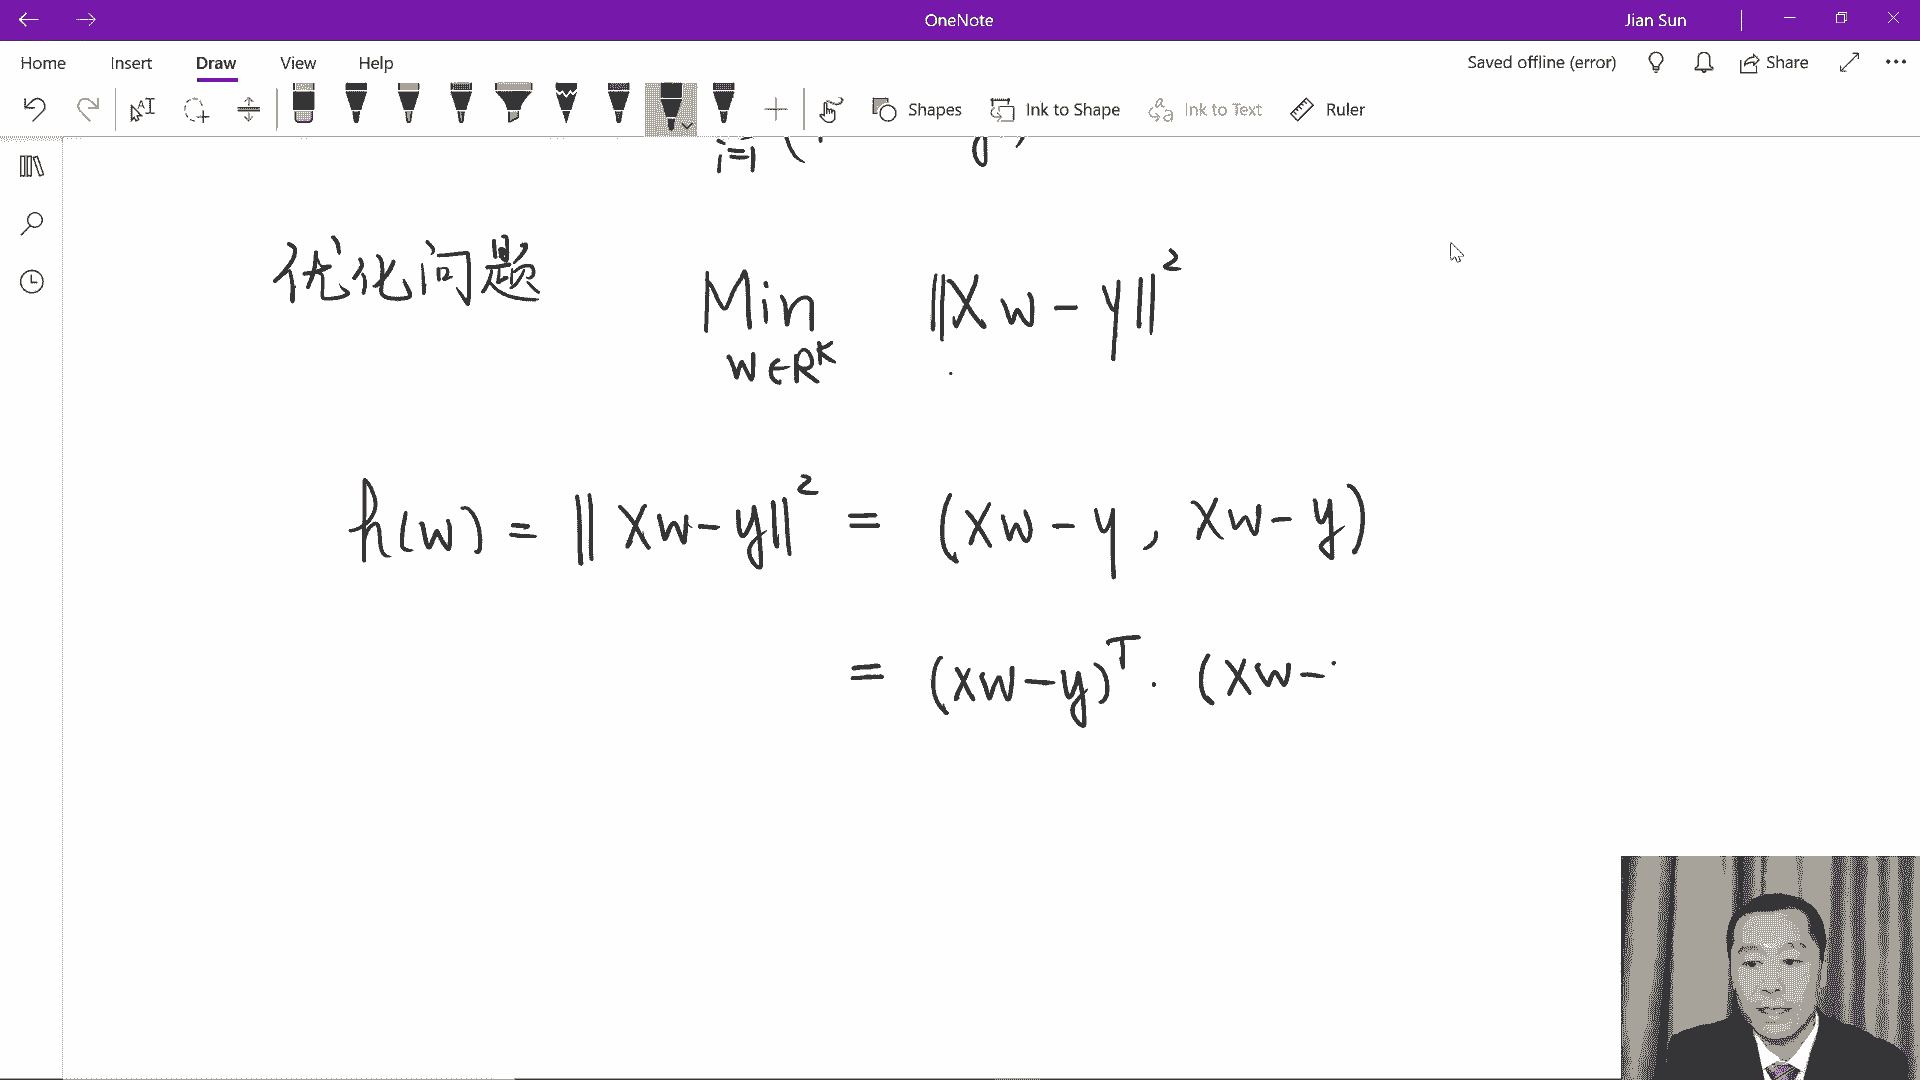 OneNote
Jian Sun
Home Insert Draw View Help
Saved offline (error) Share
Shapes Ink to Shape Ink to Text Ruler
i=1
优化问题 Min ‖Xw-y‖²
w∈Rᴷ
h(w) = ‖Xw-y‖² = (Xw-y, Xw-y)
= (Xw-y)ᵀ · (Xw-